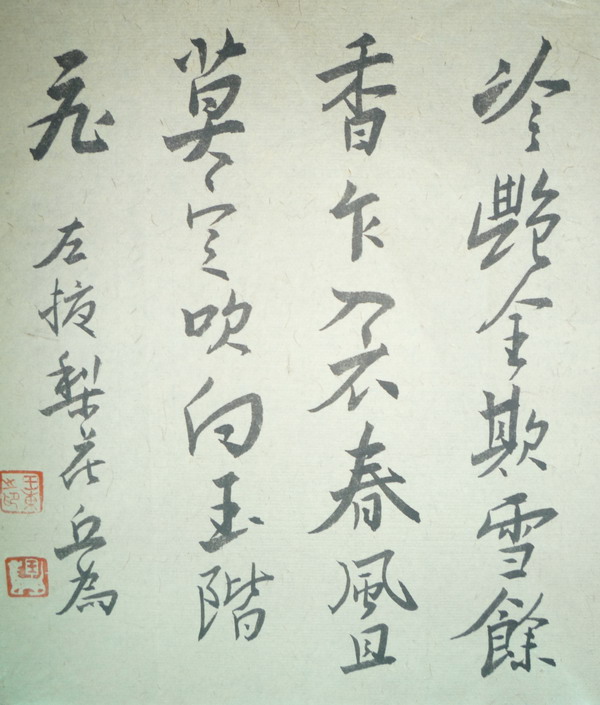 冷艷全欺雪餘
香乍入衣春風且
莫定吹向玉階
飛
左掖梨花丘為